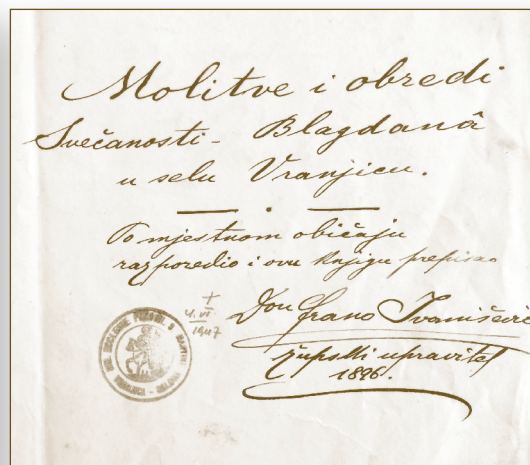 Molitve i obredi
Svečanosti - Blagdanâ
u selu Vranjicu.
Po mjestnom običaju
razporedio i ovu knjigu prepisao
Don Frano Ivanišević
župski upravitelj
1896.
+
4. VI
1947